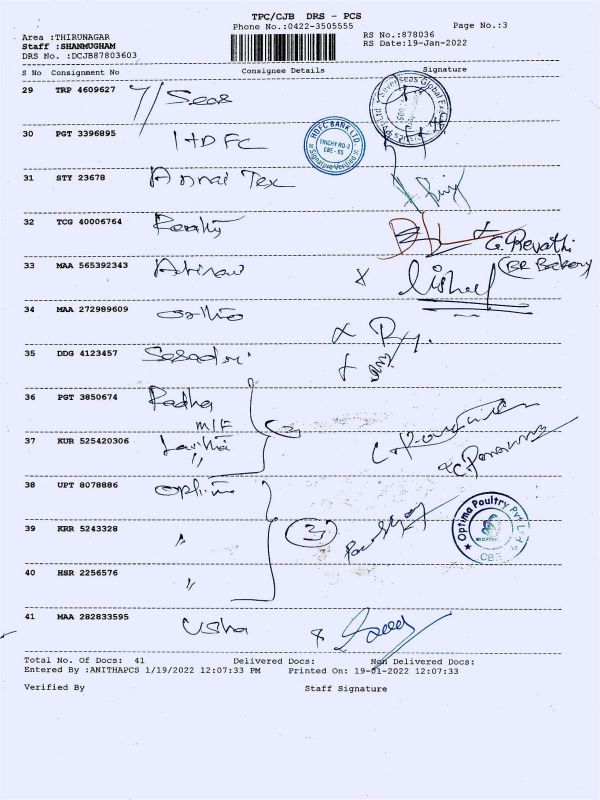 TPC/CJB DRS - PCS
Phone No.:0422-3505555
Page No.:3
Area :THIRUNAGAR
RS No.:878036
Staff :SHANMUGHAM
RS Date:19-Jan-2022
DRS No. :DCJB87803603
S No Consignment No Consignee Details Signature
29 TRP 4609627 7/Seas
30 PGT 3396895 HDFC
HDFC BANK LTD.
TRICHY RD-2
CBE - 05
31 STY 23678 Annai Tex
32 TCG 40006764
G. Revathi
(BR Bakery
33 MAA 565392343
34 MAA 272989609
35 DDG 4123457
36 PGT 3850674 Radha
M/F
37 KUR 525420306 "
38 UPT 8078886 Optima
39 KRR 5243328 " 3
Optima Poultry Pvt Ltd
CBE
40 HSR 2256576 "
41 MAA 282833595 Usha x
Total No. Of Docs: 41 Delivered Docs: Non Delivered Docs:
Entered By :ANITHAPCS 1/19/2022 12:07:33 PM Printed On: 19-01-2022 12:07:33
Verified By Staff Signature